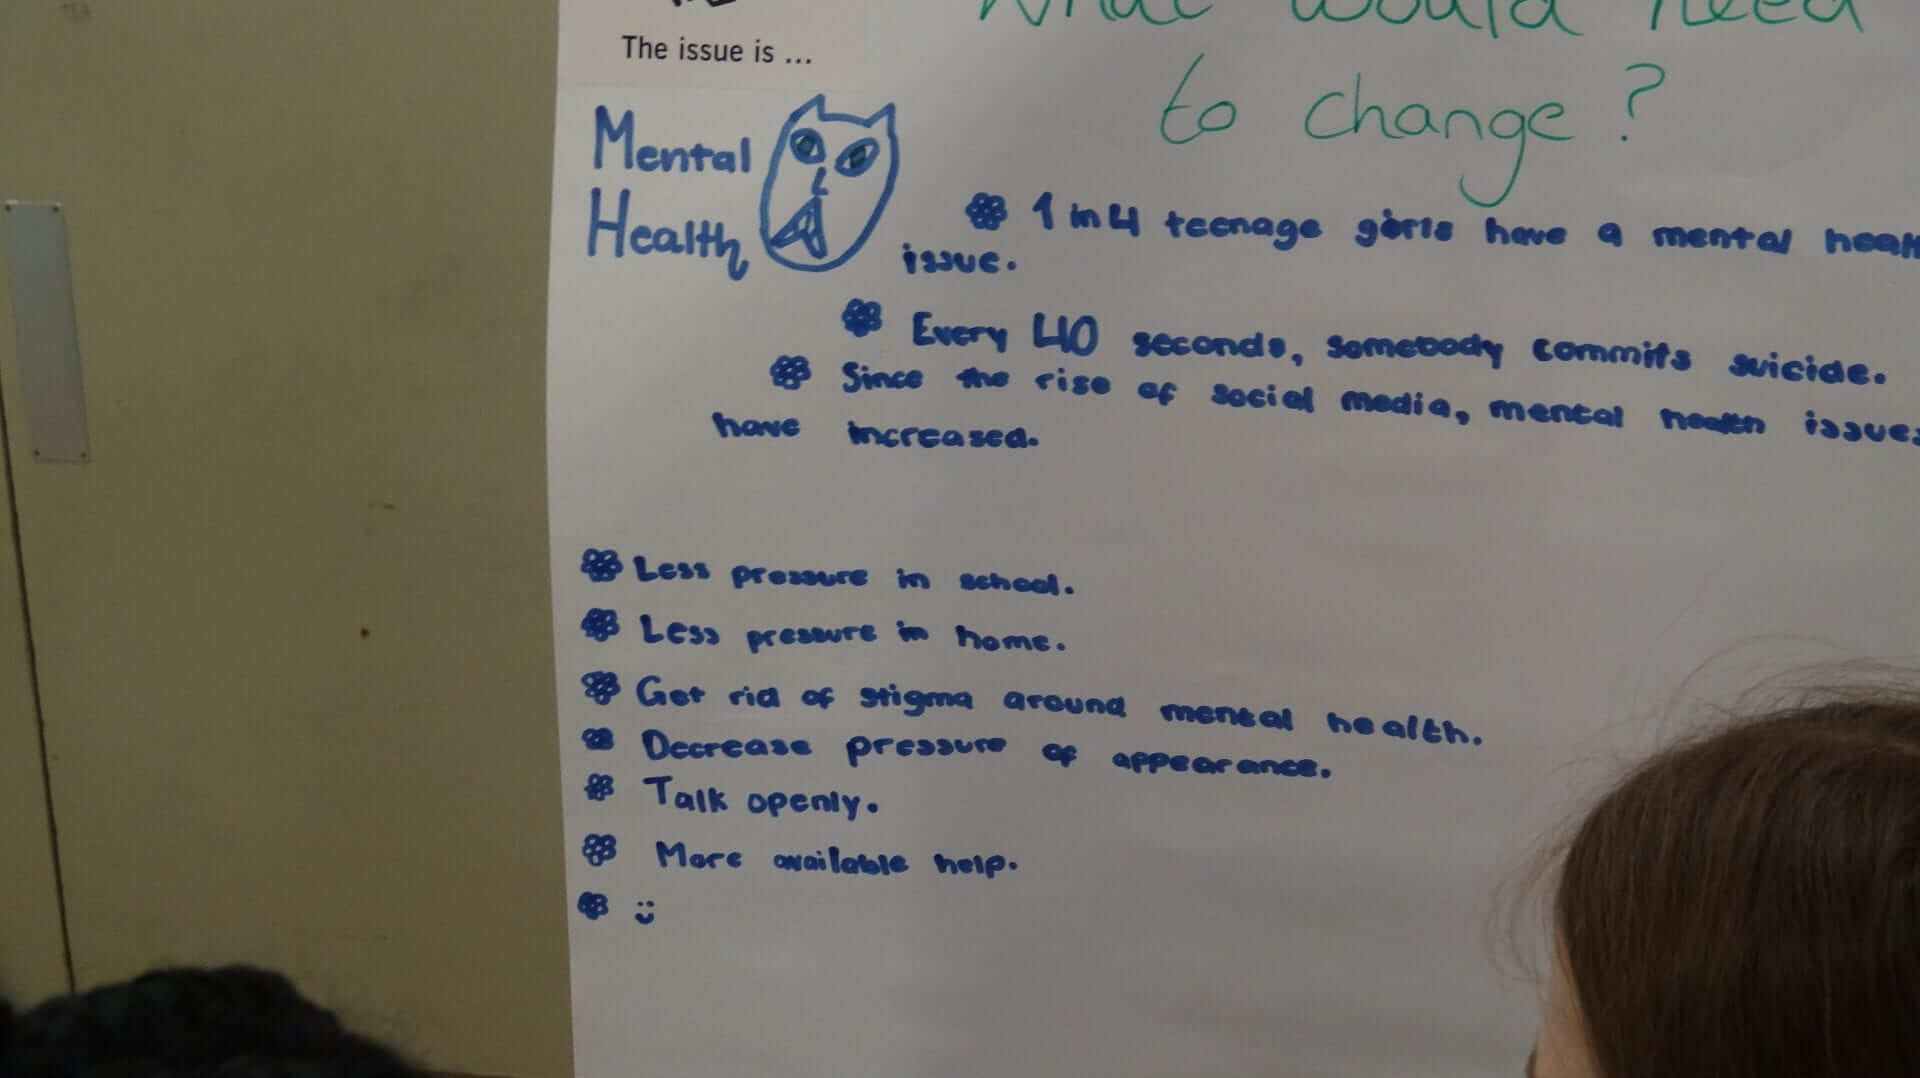 The issue is ...
What would need
to change?
Mental
Health
1 in 4 teenage girls have a mental healt
issue.
Every 40 seconds, somebody commits suicide.
Since the rise of social media, mental health issues
have increased.
Less pressure in school.
Less pressure in home.
Get rid of stigma around mental health.
Decrease pressure of appearance.
Talk openly.
More available help.